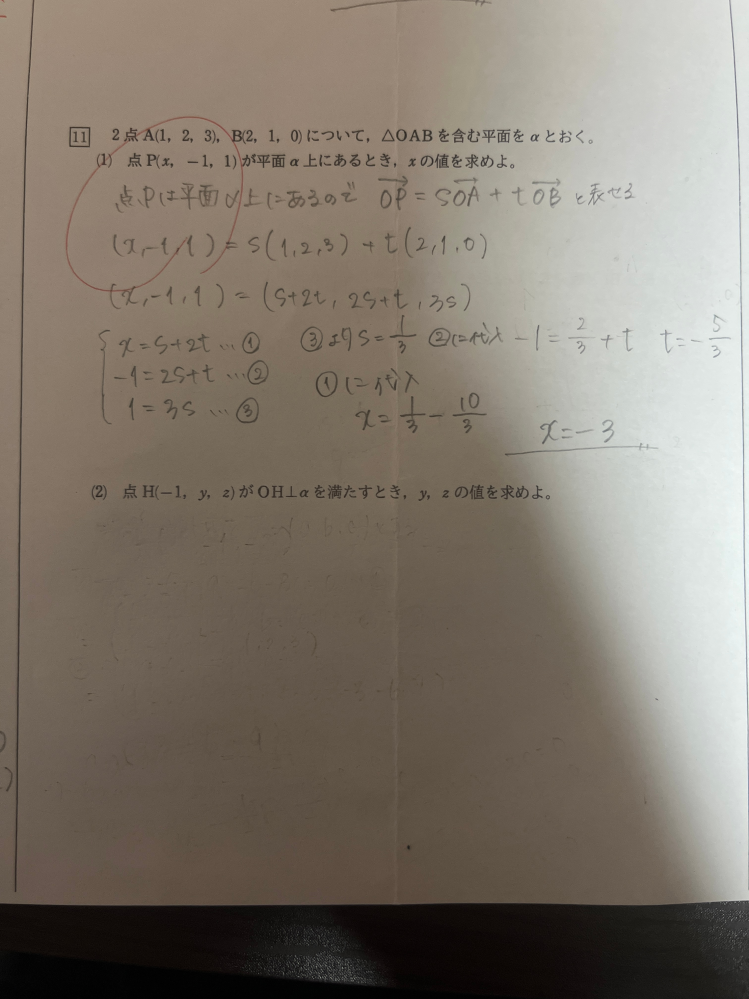 11 2点A(1, 2, 3), B(2, 1, 0)について, △OABを含む平面をαとおく。
(1) 点P(x, -1, 1)が平面α上にあるとき, xの値を求めよ。
点Pは平面α上にあるので OP = sOA + tOB と表せる
(x,-1,1) = s(1,2,3) + t(2,1,0)
(x,-1,1) = (s+2t, 2s+t, 3s)
x=s+2t …① ③よりs=1/3 ②に代入 -1=2/3+t t=-5/3
-1=2s+t …② ①に代入
1=3s …③ x=1/3-10/3
x=-3
(2) 点H(-1, y, z)がOH⊥αを満たすとき, y, zの値を求めよ。